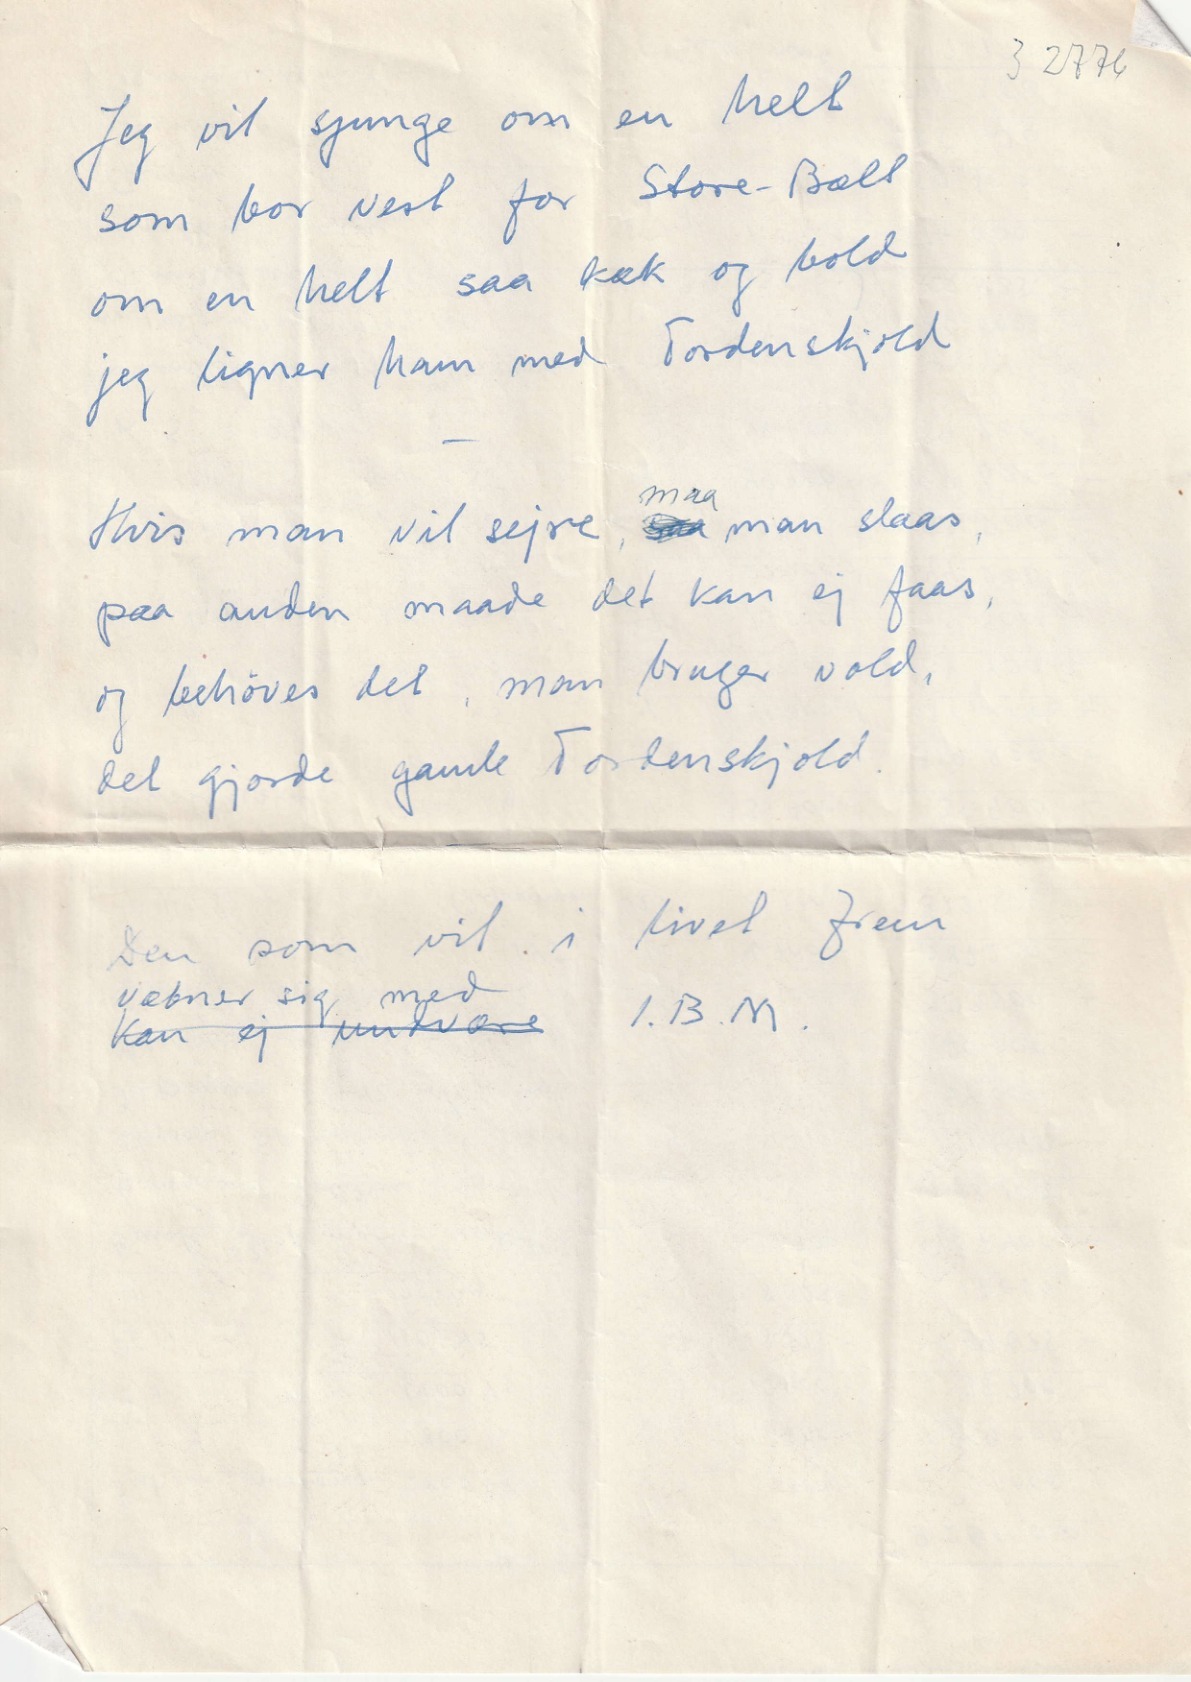 3 2776
Jeg vil sjunge om en helt
som bor vest for Store-Bælt
om en helt saa kæk og bold
jeg ligner ham med Tordenskjold
—
Hvis man vil sejre, maa man slaas,
paa anden maade det kan ej faas,
og behöves det, man bruger vold,
det gjorde gamle Tordenskjold.
Den som vil i livet frem
væbner sig med
kan ej undvære I.B.M.